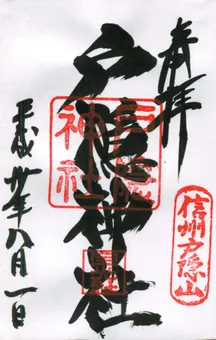 奉拝
信州戸隠山
戸隠神社
戸隠
神社
平成廿年八月一日